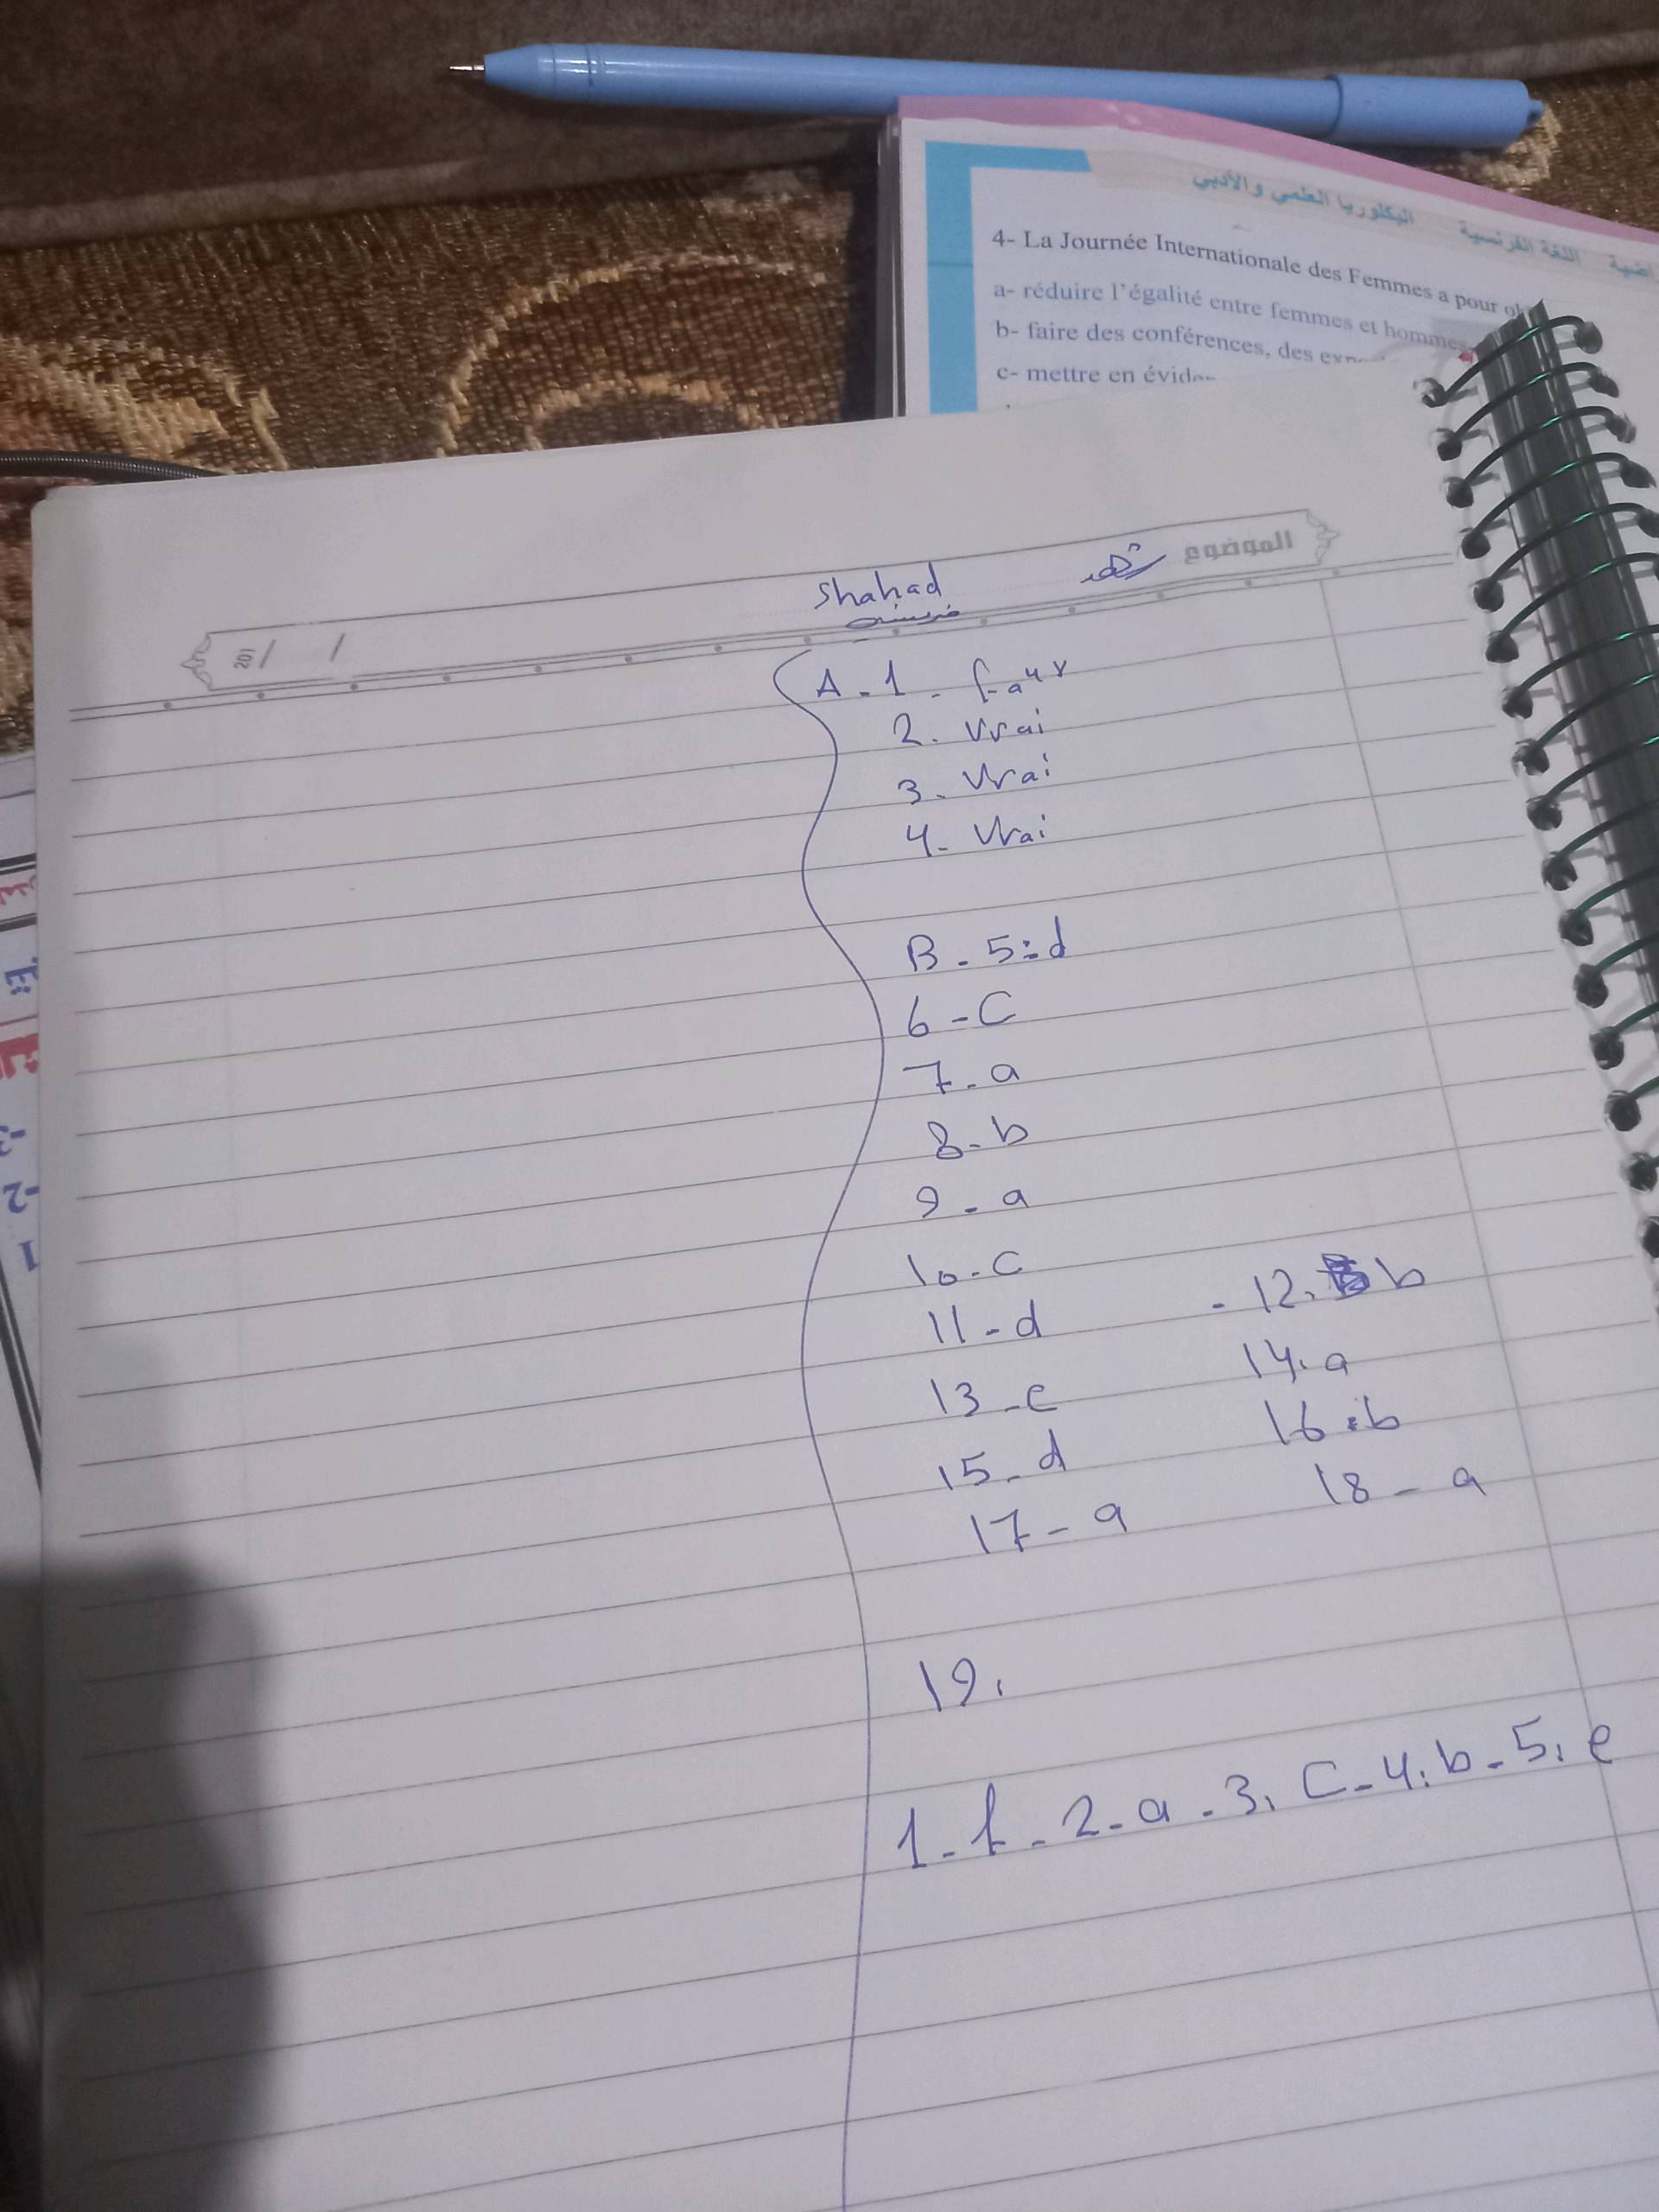 البكلوريا العلمي والأدبي اللغة الفرنسية
4- La Journée Internationale des Femmes a pour
a- réduire l'égalité entre femmes et hommes
b- faire des conférences, des
c- mettre en
الموضوع
شهد
Shahad
201 / /
A - 1 - faux
2. Vrai
3. Vrai
4. Vrai
B - 5: d
6 - C
7 - a
8 - b
9 - a
10 - c
11 - d - 12. b
13 - c 14. a
15 - d 16: b
17 - a 18 - a
19.
1 - f - 2 - a - 3. C - 4. b - 5. e
-2
1